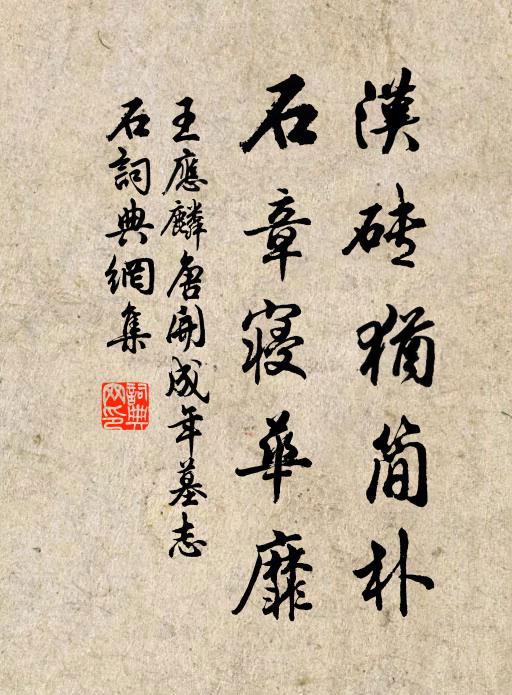 漢磚猶簡朴
石章寝華靡
王應麟唐開成年墓志
石詞典網集
詞典網印